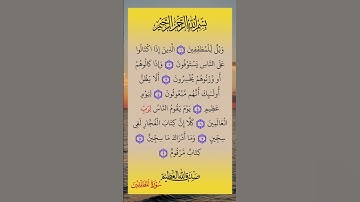 بسم الله الرحمن الرحيم
وَيْلٌ لِّلْمُطَفِّفِينَ ۝ الَّذِينَ إِذَا اكْتَالُوا
عَلَى النَّاسِ يَسْتَوْفُونَ ۝ وَإِذَا كَالُوهُمْ
أَو وَّزَنُوهُمْ يُخْسِرُونَ ۝ أَلَا يَظُنُّ
أُولَٰئِكَ أَنَّهُم مَّبْعُوثُونَ ۝ لِيَوْمٍ
عَظِيمٍ ۝ يَوْمَ يَقُومُ النَّاسُ لِرَبِّ
الْعَالَمِينَ ۝ كَلَّا إِنَّ كِتَابَ الْفُجَّارِ لَفِي
سِجِّينٍ ۝ وَمَا أَدْرَاكَ مَا سِجِّينٌ ۝
كِتَابٌ مَّرْقُومٌ ۝
صدق الله العظيم
سورة المطففين